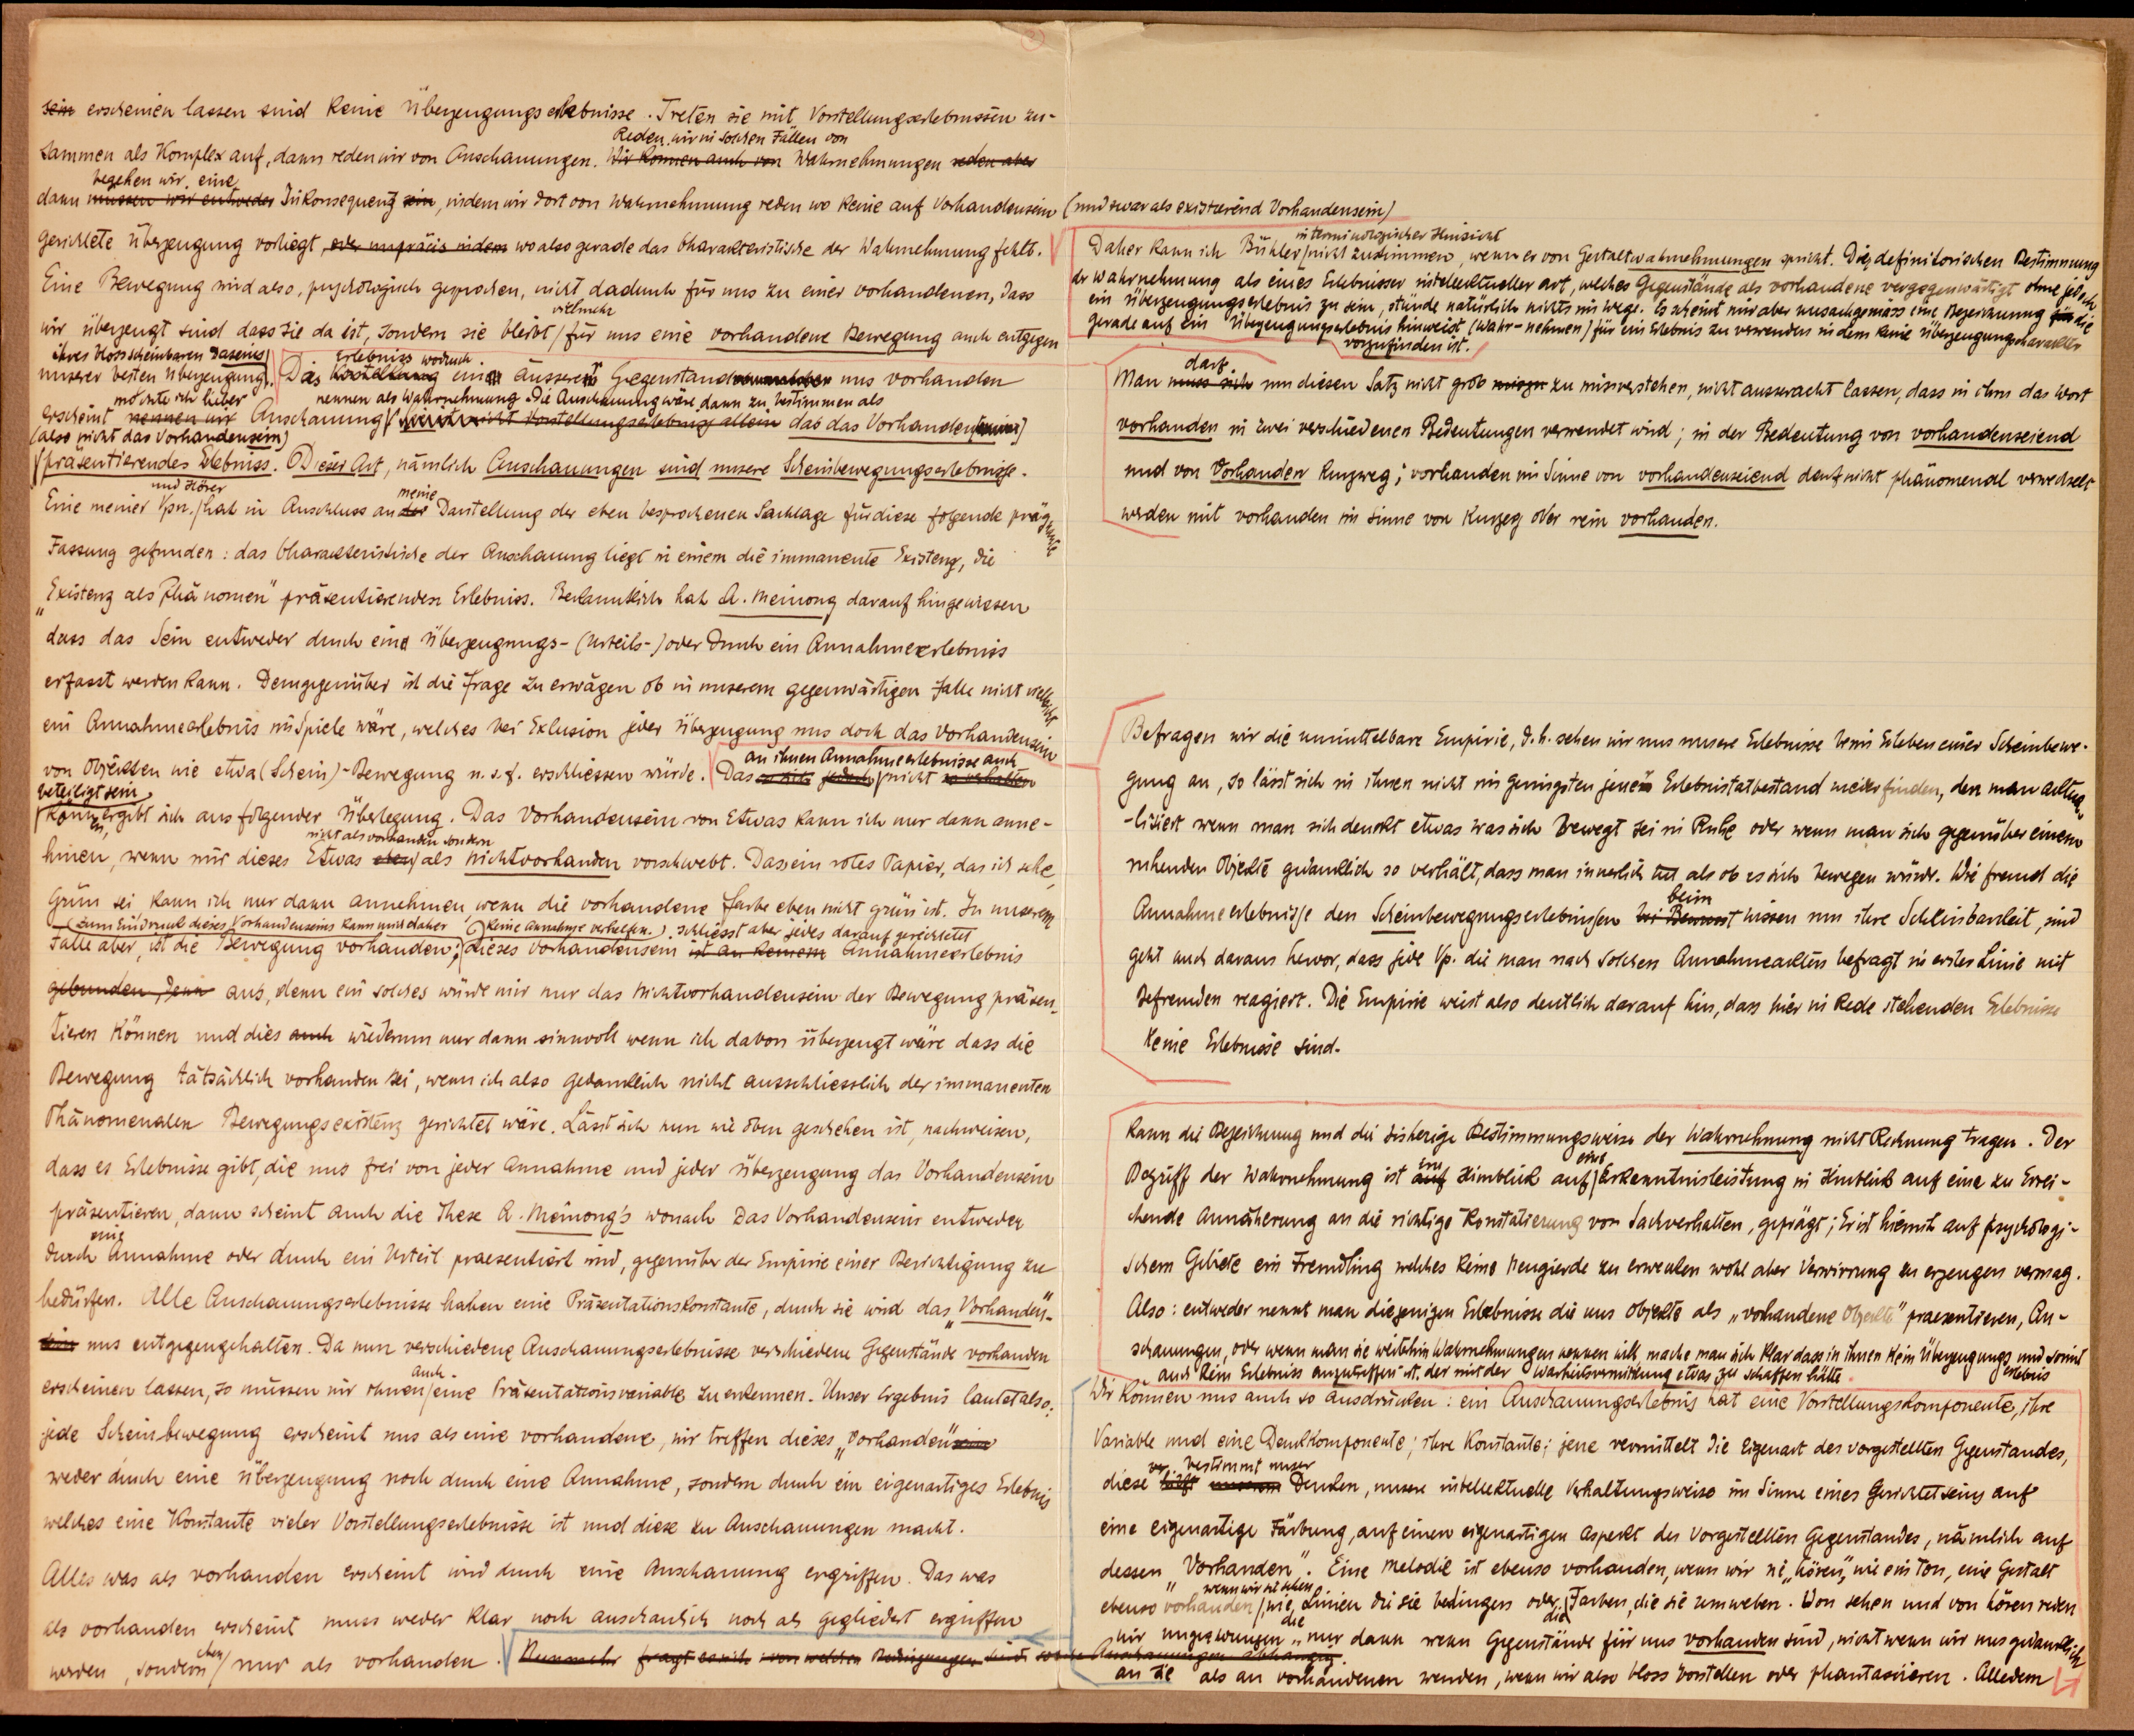 2)
sein erscheinen lassen sind keine Überzeugungserlebnisse. Treten sie mit Vorstellungserlebnissen zu-
Reden wir in solchen Fällen von
sammen als Komplex auf, dann reden wir von Anschauungen. Wir können auch von Wahrnehmungen reden aber
begehen wir eine
dann müssen wir entweder Inkonsequenz sein, indem wir dort von Wahrnehmung reden wo keine auf Vorhandensein
gerichtete Überzeugung vorliegt, oder unpräcis indem wo also gerade das Charakteristische der Wahrnehmung fehlt.
Eine Bewegung wird also, psychologisch gesprochen, nicht dadurch für uns zu einer vorhandenen, dass
vielmehr
wir überzeugt sind dass sie da ist, sondern sie bleibt / für uns eine vorhandene Bewegung auch entgegen
ihres bloss scheinbaren Daseins
unserer besten Überzeugung. Das Vorstellung ein äusserer Gegenstand uns vorhanden
Erlebniss wodurch
möchte ich lieber nennen als Wahrnehmung. Die Anschauung wäre dann zu bestimmen als
erscheint nennen wir Anschauung nicht Vorstellungserlebnis allein das das Vorhanden
(also nicht das Vorhandensein)
präsentierendes Erlebniss. Dieser Art, nämlich Anschauungen sind unsere Scheinbewegungserlebnisse.
und Hörer meine
Eine meiner Vpn. / hat in Anschluss an der Darstellung der eben besprochenen Sachlage für diese folgende prägnante
Fassung gefunden: das Charakteristische der Anschauung liegt in einem die immanente Existenz, die
„Existenz als Phänomen" präsentierenden Erlebniss. Bekanntlich hat A. Meinong darauf hingewiesen
dass das Sein entweder durch eine Überzeugungs- (Urteils-) oder durch ein Annahmeerlebniss
erfasst werden kann. Demgegenüber ist die Frage zu erwägen ob in unserem gegenwärtigen Falle nicht vielleicht
ein Annahmeerlebnis im Spiele wäre, welches bei Exlusion jeder Überzeugung uns doch das Vorhandensein
an ihnen Annahmeerlebnisse auch
von Objekten wie etwa (Schein)-Bewegung u.s.f. erschliessen würde. Das jedoch nicht so verhalten
beteiligt sein
können, ergibt sich aus folgender Überlegung. Das Vorhandensein von Etwas kann ich nur dann anne-
nicht als vorhanden sondern
hmen, wenn mir dieses Etwas eben / als nichtvorhanden vorschwebt. Dass ein rotes Papier, das ich sehe,
Grün sei kann ich nur dann annehmen, wenn die vorhandene Farbe eben nicht grün ist. In unserem
(zum Eindruck dieses Vorhandenseins kann uns daher keine Annahme verhelfen.) schliesst aber jedes darauf gerichtetet
Falle aber, ist die Bewegung vorhanden; dieses Vorhandensein ist an keinem Annahmeerlebnis
gebunden, denn aus, denn ein solches würde mir nur das Nichtvorhandensein der Bewegung präsen-
tieren können und dies auch wiederum nur dann sinnvoll wenn ich davon überzeugt wäre dass die
Bewegung tätsächlich vorhanden sei, wenn ich also gedanklich nicht ausschliesslich der immanenten
Phänomenalen Bewegungsexistenz gerichtet wäre. Lässt sich nun wie oben geschehen ist, nachweisen,
dass es Erlebnisse gibt, die uns frei von jeder Annahme und jeder Überzeugung das Vorhandensein
präsentieren, dann scheint auch die These A. Meinong's wonach das Vorhandensein entweder
eine
durch Annahme oder durch ein Urteil praesentiert wird, gegenüber der Empirie einer Berichtigung zu
bedürfen. Alle Anschauungserlebnisse haben eine Präsentationskonstante, durch sie wird das „Vorhanden"-
sein uns entgegengehalten. Da nun verschiedene Anschauungserlebnisse verschiedene Gegenstände vorhanden
auch
erscheinen lassen, so müssen wir ihnen / eine Präsentationsvariable zuerkennen. Unser Ergebnis lautet also:
jede Scheinbewegung erscheint uns als eine vorhandene, wir treffen dieses „Vorhanden" sein
weder durch eine Überzeugung noch durch eine Annahme, sondern durch ein eigenartiges Erlebnis
welches eine Konstante vieler Vorstellungserlebnisse ist und diese zu Anschauungen macht.
Alles was als vorhanden erscheint wird durch eine Anschauung ergriffen. Das was
als vorhanden erscheint muss weder klar noch anschaulich noch als gegliedert ergriffen
eben
werden, sondern / nur als vorhanden. Nunmehr fragt es sich von welchen Bedingungen sind Anschauungen abhängig.
(und zwar als existierend Vorhandensein)
in terminologischer Hinsicht
Daher kann ich Bühler / nicht zustimmen, wenn er von Gestaltwahrnehmungen spricht. Die definitorischen Bestimmung
der Wahrnehmung als eines Erlebnisses intellektueller Art, welches Gegenstände als vorhandene vergegenwärtigt ohne jedoch
ein Überzeugungserlebnis zu sein, stünde natürlich nichts im Wege. Es scheint mir aber unsachgemäss eine Bezeichnung für die
gerade auf ein Überzeugungserlebnis hinweist (Wahr-nehmen) für ein Erlebnis zu verwenden in dem keine Überzeugungscharakter
vorzufinden ist.
darf
Man muss sich um diesen Satz nicht grob zu missverstehen, nicht ausseracht lassen, dass in ihm das Wort
vorhanden in zwei verschiedenen Bedeutungen verwendet wird; in der Bedeutung von vorhandenseiend
und von Vorhanden kurzweg; vorhanden im Sinne von vorhandenseiend darf nicht phänomenal verwechselt
werden mit vorhanden im Sinne von kurzweg oder rein vorhanden.
Befragen wir die unmittelbare Empirie, d.h. sehen wir uns unsere Erlebnisse beim Erleben einer Scheinbewe-
gung an, so lässt sich in ihnen nicht im geringsten jener Erlebnistatbestand wiederfinden, den man aktua-
-lisiert wenn man sich denkt etwas was sich bewegt sei in Ruhe oder wenn man sich gegenüber einem
ruhenden Objekte gedanklich so verhält, dass man innerlich tut als ob es sich bewegen würde. Wie fremd die
beim
Annahmeerlebnisse den Scheinbewegungserlebnissen bei Bewusst wissen um ihre Scheinbarkeit, sind
geht auch daraus hervor, dass jede Vp. die man nach solchen Annahmeakten befragt in erster Linie mit
Befremden reagiert. Die Empirie weist also deutlich darauf hin, dass hier in Rede stehenden Erlebnisse
keine Erlebnisse sind.
kann die Bezeichnung und die bisherige Bestimmungsweise der Wahrnehmung nicht Rechnung tragen. Der
im eine
Begriff der Wahrnehmung ist auf Hinblick auf / Erkenntnisleistung in Hinblick auf eine zu Errei-
chende Annäherung an die richtige Konstatierung von Sachverhalten, geprägt; Er ist hiemit auf psychologi-
schem Gebiete ein Fremdling welches keine Neugierde zu erwecken wohl aber Verwirrung zu erzeugen vermag.
Also: entweder nennt man diejenigen Erlebnisse die uns Objekte als „vorhandene Objekte" praesentieren, An-
schauungen, oder wenn man sie weiterhin Wahrnehmungen nennen will, mache man sich klar dass in ihnen kein Überzeugungs und somit
erlebnis
auch kein Erlebniss anzutreffen ist, der mit der Wahrheitsvermittlung etwas zu schaffen hätte.
Wir können uns auch so ausdrücken: ein Anschauungserlebnis hat eine Vorstellungskomponente, ihre
Variable und eine Denkkomponente; ihre Konstante; jene vermittelt die Eigenart des vorgestellten Gegenstandes,
bestimmt unser
diese unserem Denken, unsere intellektuelle Verhaltungsweise im Sinne eines Gerichtetseins auf
eine eigenartige Färbung, auf einen eigenartigen Aspekt des Vorgestellten Gegenstandes, nämlich auf
dessen „Vorhanden". Eine Melodie ist ebenso vorhanden, wenn wir sie „hören", wie ein Ton, eine Gestalt
wenn wir sie sehen
ebenso „vorhanden /, wie Linien die sie bedingen oder die Farben, die sie umweben. Von sehen und von hören reden
die
wir ungezwungen nur dann wenn Gegenstände für uns vorhanden sind, nicht wenn wir uns gedanklich
an sie als an vorhandenen wenden, wenn wir also bloss vorstellen oder phantasieren. Alledem